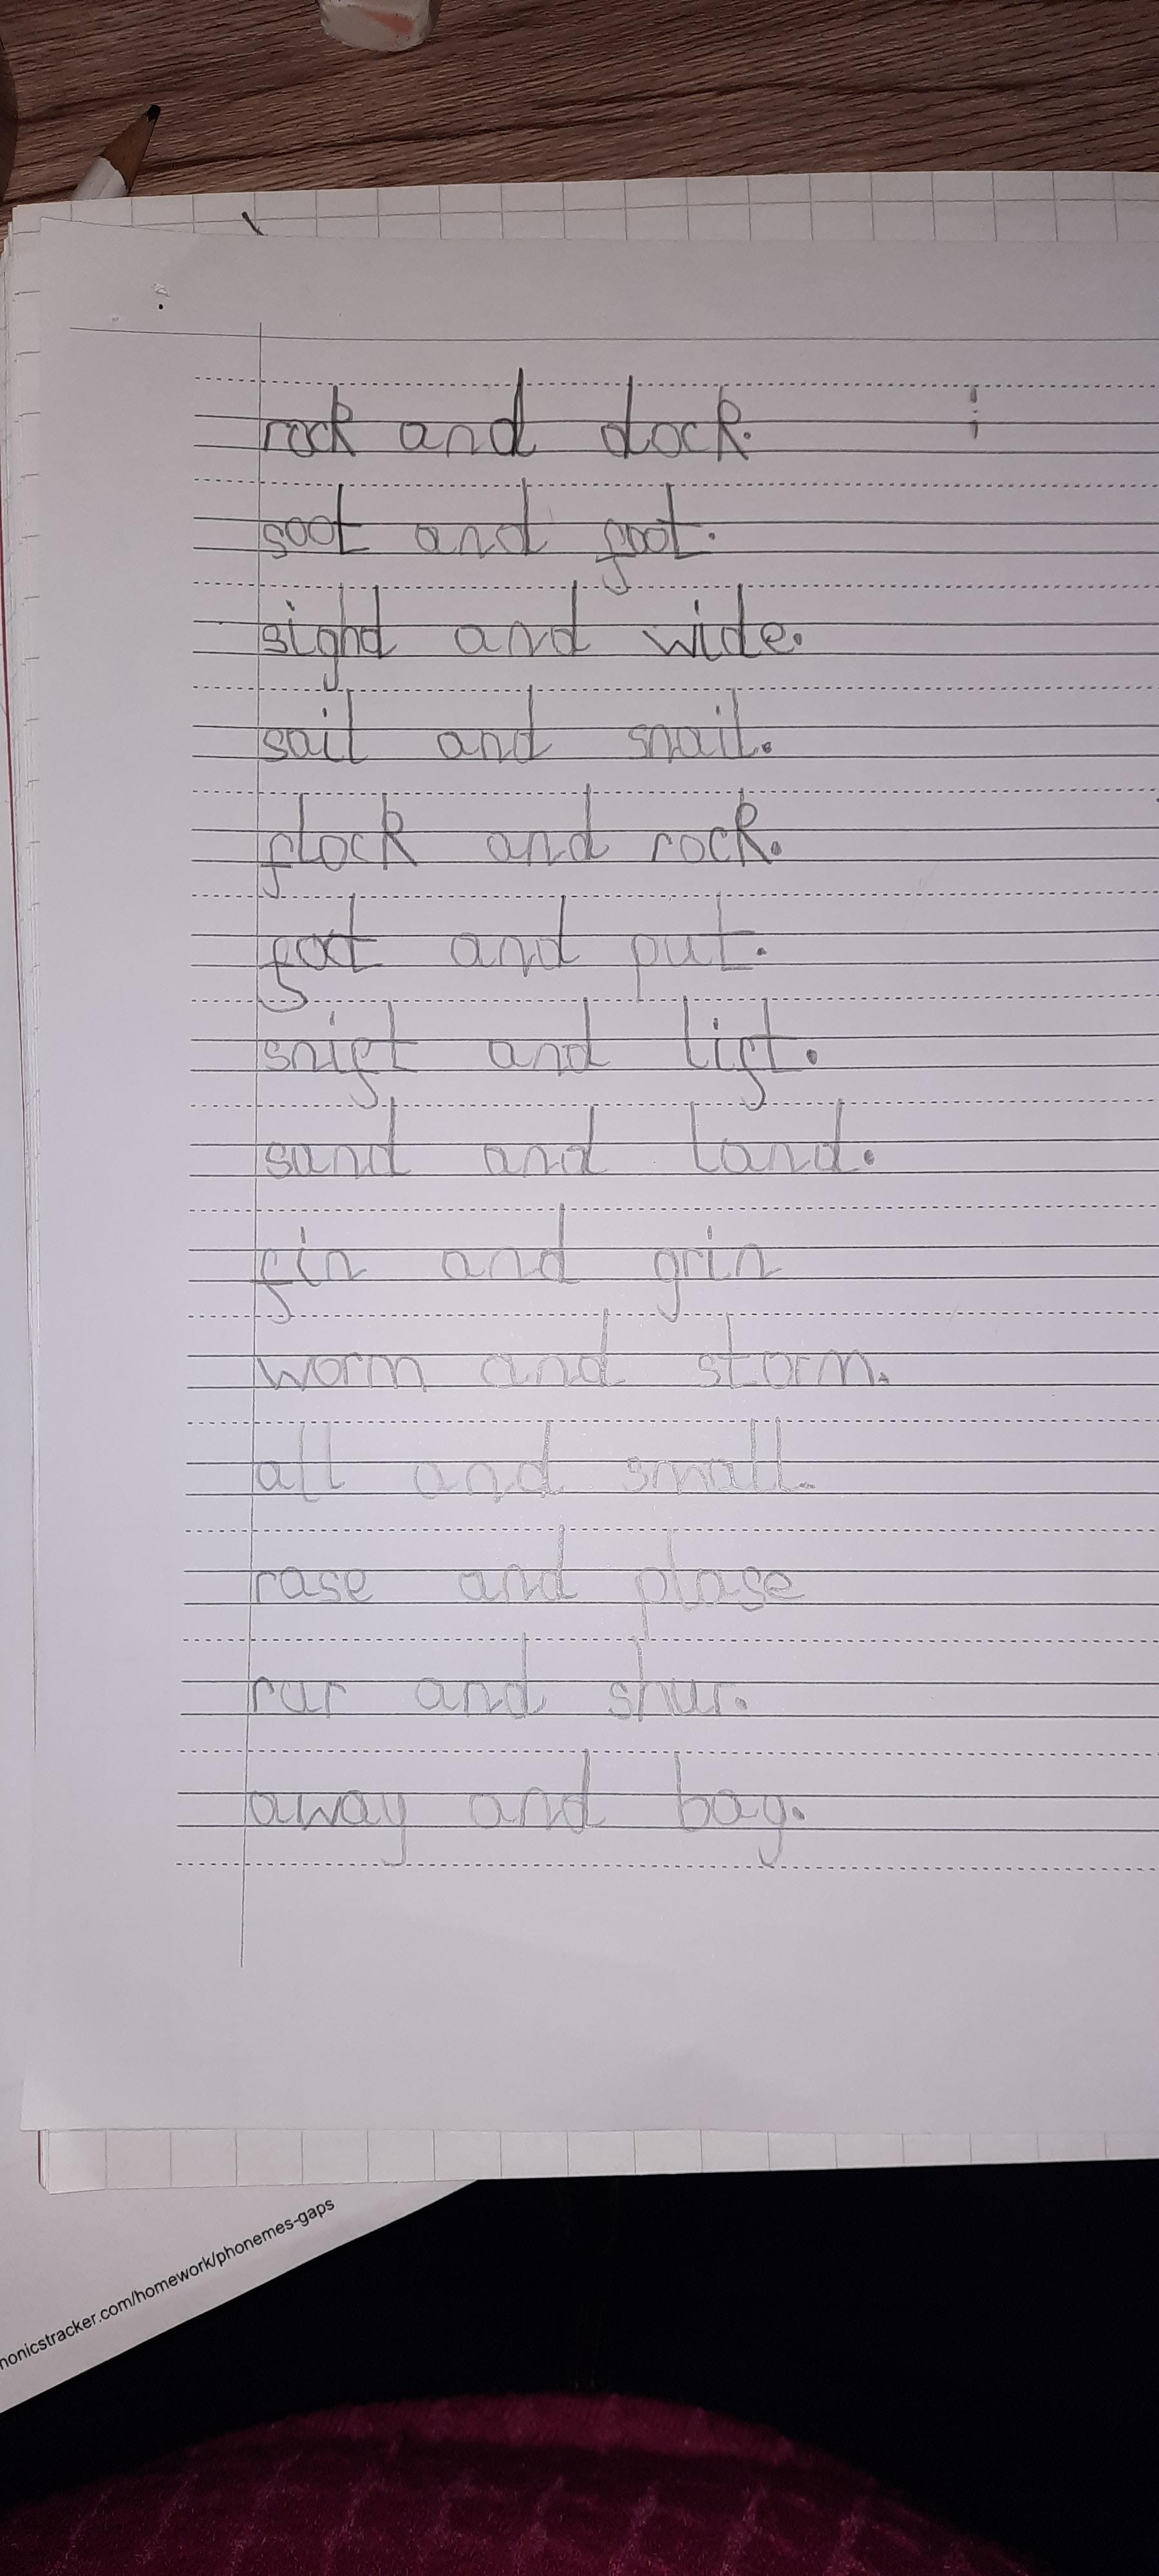 rock and dock.
soot and foot.
sighd and wide.
sail and snail.
flock and rock.
foot and put.
snift and lift.
sand and land.
fin and grin
worm and storm.
all and small.
rase and plase
rur and shur.
away and bay.
honicstracker.com/homework/phonemes-gaps